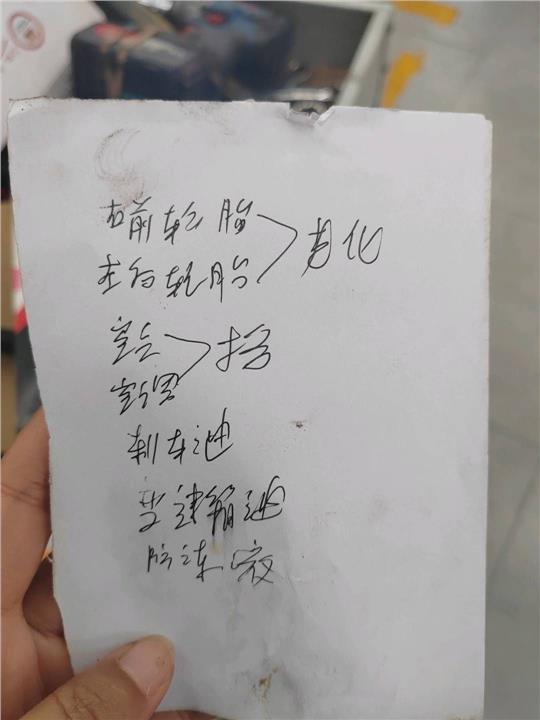 右前轮胎
左后轮胎 > 老化
空气
空调 > 换
刹车油
变速箱油
防冻液